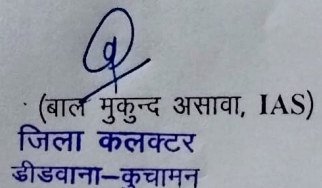 (बाल मुकुन्द असावा, IAS)
जिला कलक्टर
डीडवाना–कुचामन